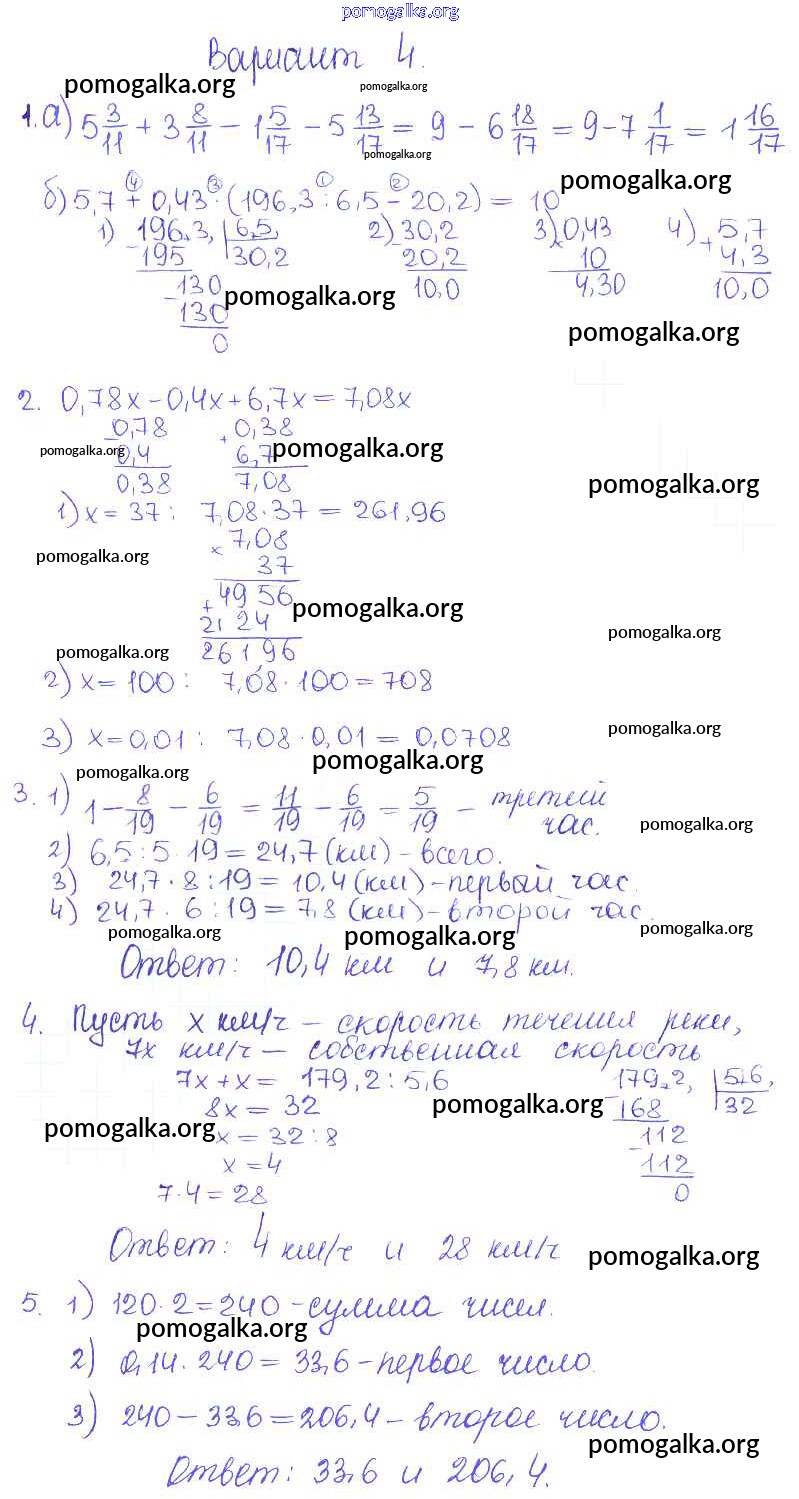 pomogalka.org
Вариант 4.
pomogalka.org pomogalka.org
1. а) 5 3/11 + 3 8/11 − 1 5/17 − 5 13/17 = 9 − 6 18/17 = 9 − 7 1/17 = 1 16/17
pomogalka.org
pomogalka.org
④ ③ ① ②
б) 5,7 + 0,43 · (196,3 : 6,5 − 20,2) = 10
1) 196,3, | 6,5, 2) 30,2 3) 0,43 4) 5,7
− 195 30,2 − 20,2 × 10 + 4,3
130 10,0 4,30 10,0
− 130 pomogalka.org
0 pomogalka.org
2. 0,78x − 0,4x + 6,7x = 7,08x
− 0,78 + 0,38
pomogalka.org 0,4 6,7 pomogalka.org
0,38 7,08 pomogalka.org
1) x = 37 : 7,08 · 37 = 261,96
× 7,08
pomogalka.org 37
+ 49 56 pomogalka.org
21 24 pomogalka.org
pomogalka.org 261 96
2) x = 100 : 7,08 · 100 = 708
3) x = 0,01 : 7,08 · 0,01 = 0,0708 pomogalka.org
pomogalka.org pomogalka.org
3. 1) 1 − 8/19 − 6/19 = 11/19 − 6/19 = 5/19 − третий
час. pomogalka.org
2) 6,5 : 5 · 19 = 24,7 (км) − всего.
3) 24,7 · 8 : 19 = 10,4 (км) − первый час.
4) 24,7 · 6 : 19 = 7,8 (км) − второй час.
pomogalka.org pomogalka.org pomogalka.org
Ответ: 10,4 км и 7,8 км.
4. Пусть x км/ч − скорость течения реки,
7x км/ч − собственная скорость
7x + x = 179,2 : 5,6 179,2, | 5,6,
8x = 32 pomogalka.org − 168 32
pomogalka.org x = 32 : 8 112
x = 4 − 112
7 · 4 = 28 0
Ответ: 4 км/ч и 28 км/ч pomogalka.org
5. 1) 120 · 2 = 240 − сумма чисел.
pomogalka.org
2) 0,14 · 240 = 33,6 − первое число.
3) 240 − 33,6 = 206,4 − второе число.
pomogalka.org
Ответ: 33,6 и 206,4.